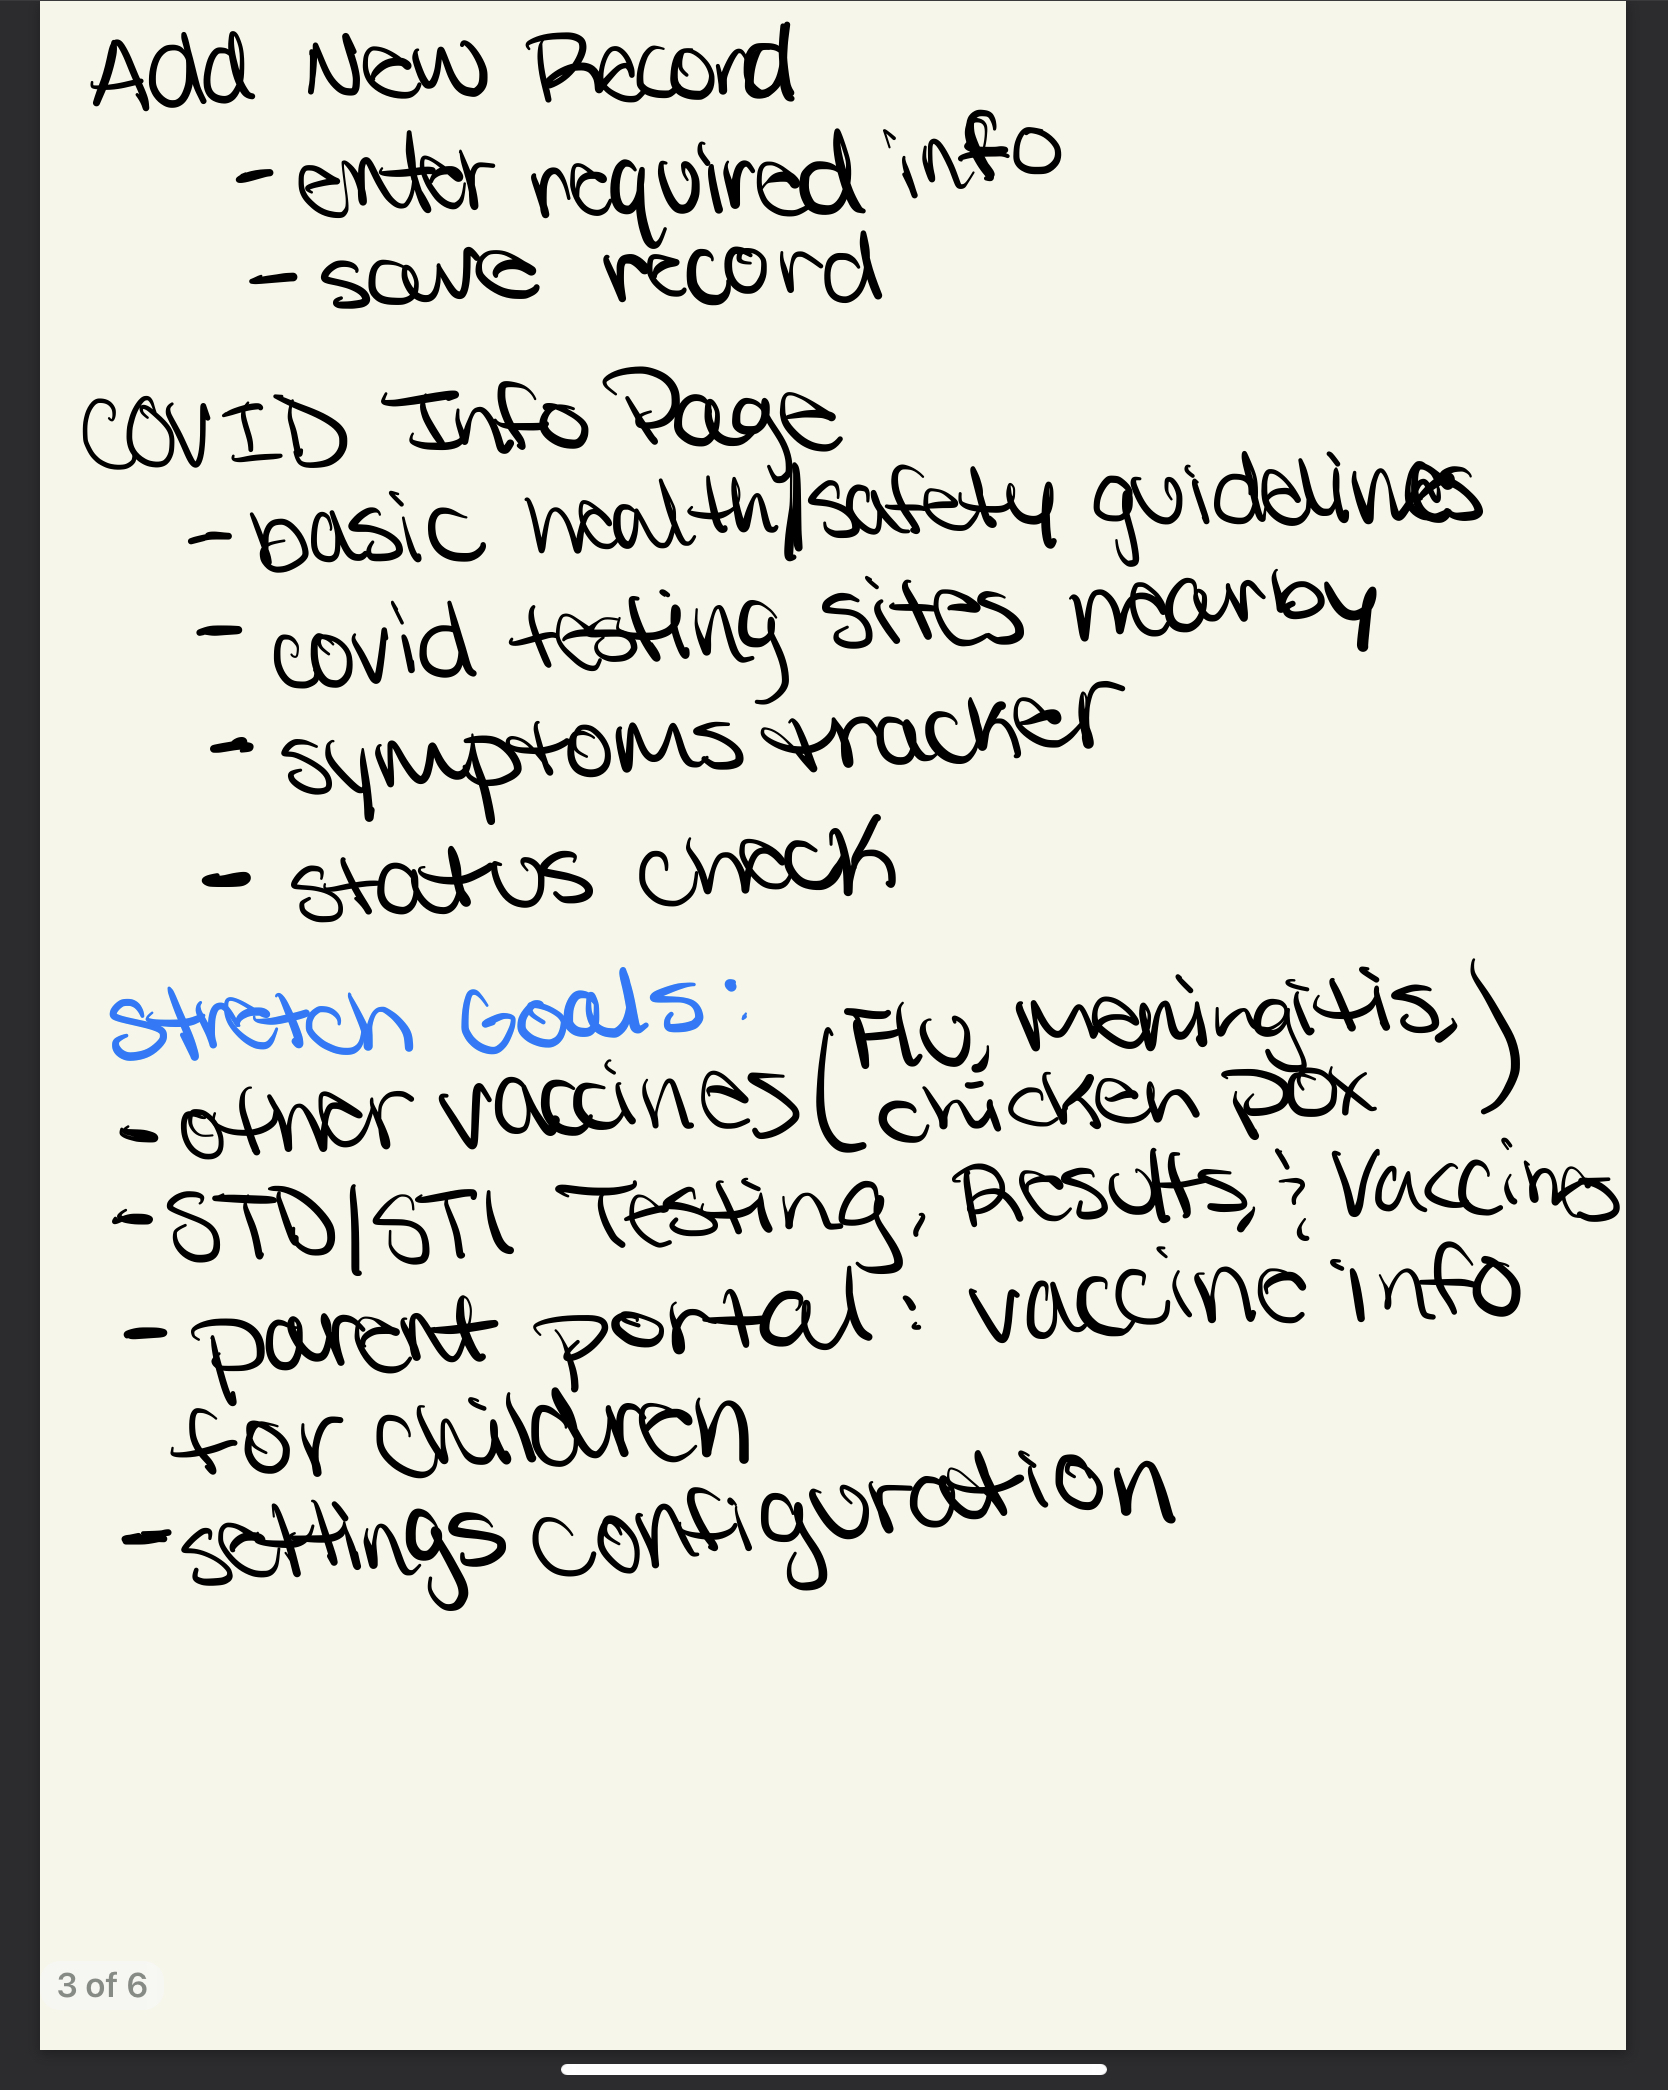 Add New Record
- enter required info
- save record
COVID Info Page
- basic health/safety guidelines
- covid testing sites nearby
- symptoms tracker
- status check
Stretch Goals:
- other vaccines (Flu, meningitis,
chicken pox)
- STD/STI Testing, Results, & Vaccines
- parent portal: vaccine info
for children
- settings configuration
3 of 6